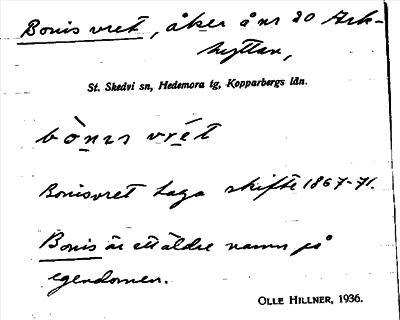 Bonis vret, åker å nr 20 Ark-
hyttan,
St. Skedvi sn, Hedemora tg, Kopparbergs län.
bònıs vrét
Bonisvret laga skifte 1867-71.
Bonis är ett äldre namn på
egendomen.
OLLE HILLNER, 1936.